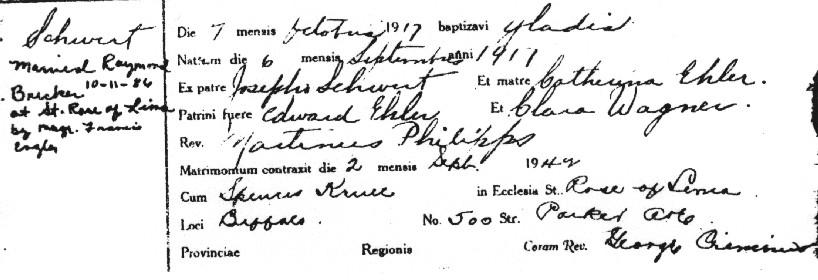 Schwert
Married Raymond
Brecker 10-11-86
at St. Rose of Lima
by Msgr. Francis
Engler
Die 7 mensis Octobris 1917 baptizavi Gladis
Natum die 6 mensis Septembris anni 1917
Ex patre Josepho Schwert Et matre Catherina Ehler.
Patrini fuere Edward Ehler Et Clara Wagner.
Rev. Martinus Philipps
Matrimonium contraxit die 2 mensis Sept. 1942
Cum Kruce in Ecclesia St. Rose of Lima
Loci Buffalo. No. 500 Str. Parker Ave
Provinciae Regionis Coram Rev. George